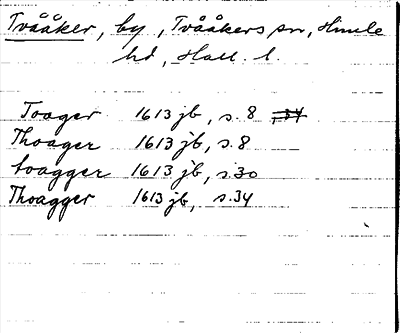 Tvååker, by, Tvååkers sn, Himle
hd, Hall. l.
Toager 1613 jb, s. 8
Thoager 1613 jb, s. 8
toagger 1613 jb, s. 30
Thoagger 1613 jb, s. 34